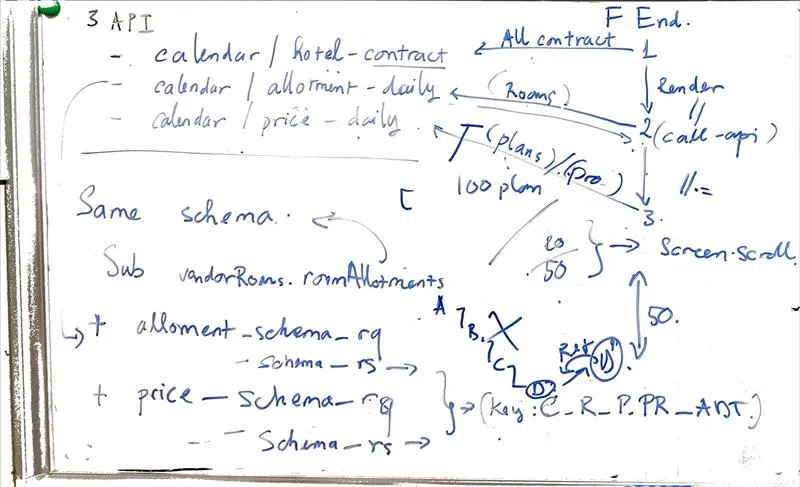 3 API
F End.
- calendar / hotel-contract
All contract
1
- calendar / allotment-daily
(Rooms)
Render
- calendar / price-daily
2 (call-api)
(plans)/(Pro
100 plan
3.
Same schema.
20
50
Screen.scroll
Sub vandorRoms.roomAllotments
A
B.
C
D
50.
+ alloment_schema_rq
- schema_rs
+ price - schema_rq
- Schema_rs
(Key: C_R_P.PR_ADT.)